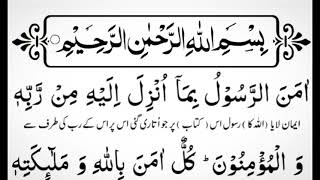 بِسْمِ اللّٰهِ الرَّحْمٰنِ الرَّحِيْمِ
اٰمَنَ الرَّسُوْلُ بِمَاۤ اُنْزِلَ اِلَيْهِ مِنْ رَّبِّهٖ
ایمان لایا (اللہ کا) رسول اس (کتاب) پر جو اُتاری گئی اس پر اس کے رب کی طرف سے
وَ الْمُؤْمِنُوْنَ ؕ كُلٌّ اٰمَنَ بِاللّٰهِ وَ مَلٰٓىِٕكَتِهٖ